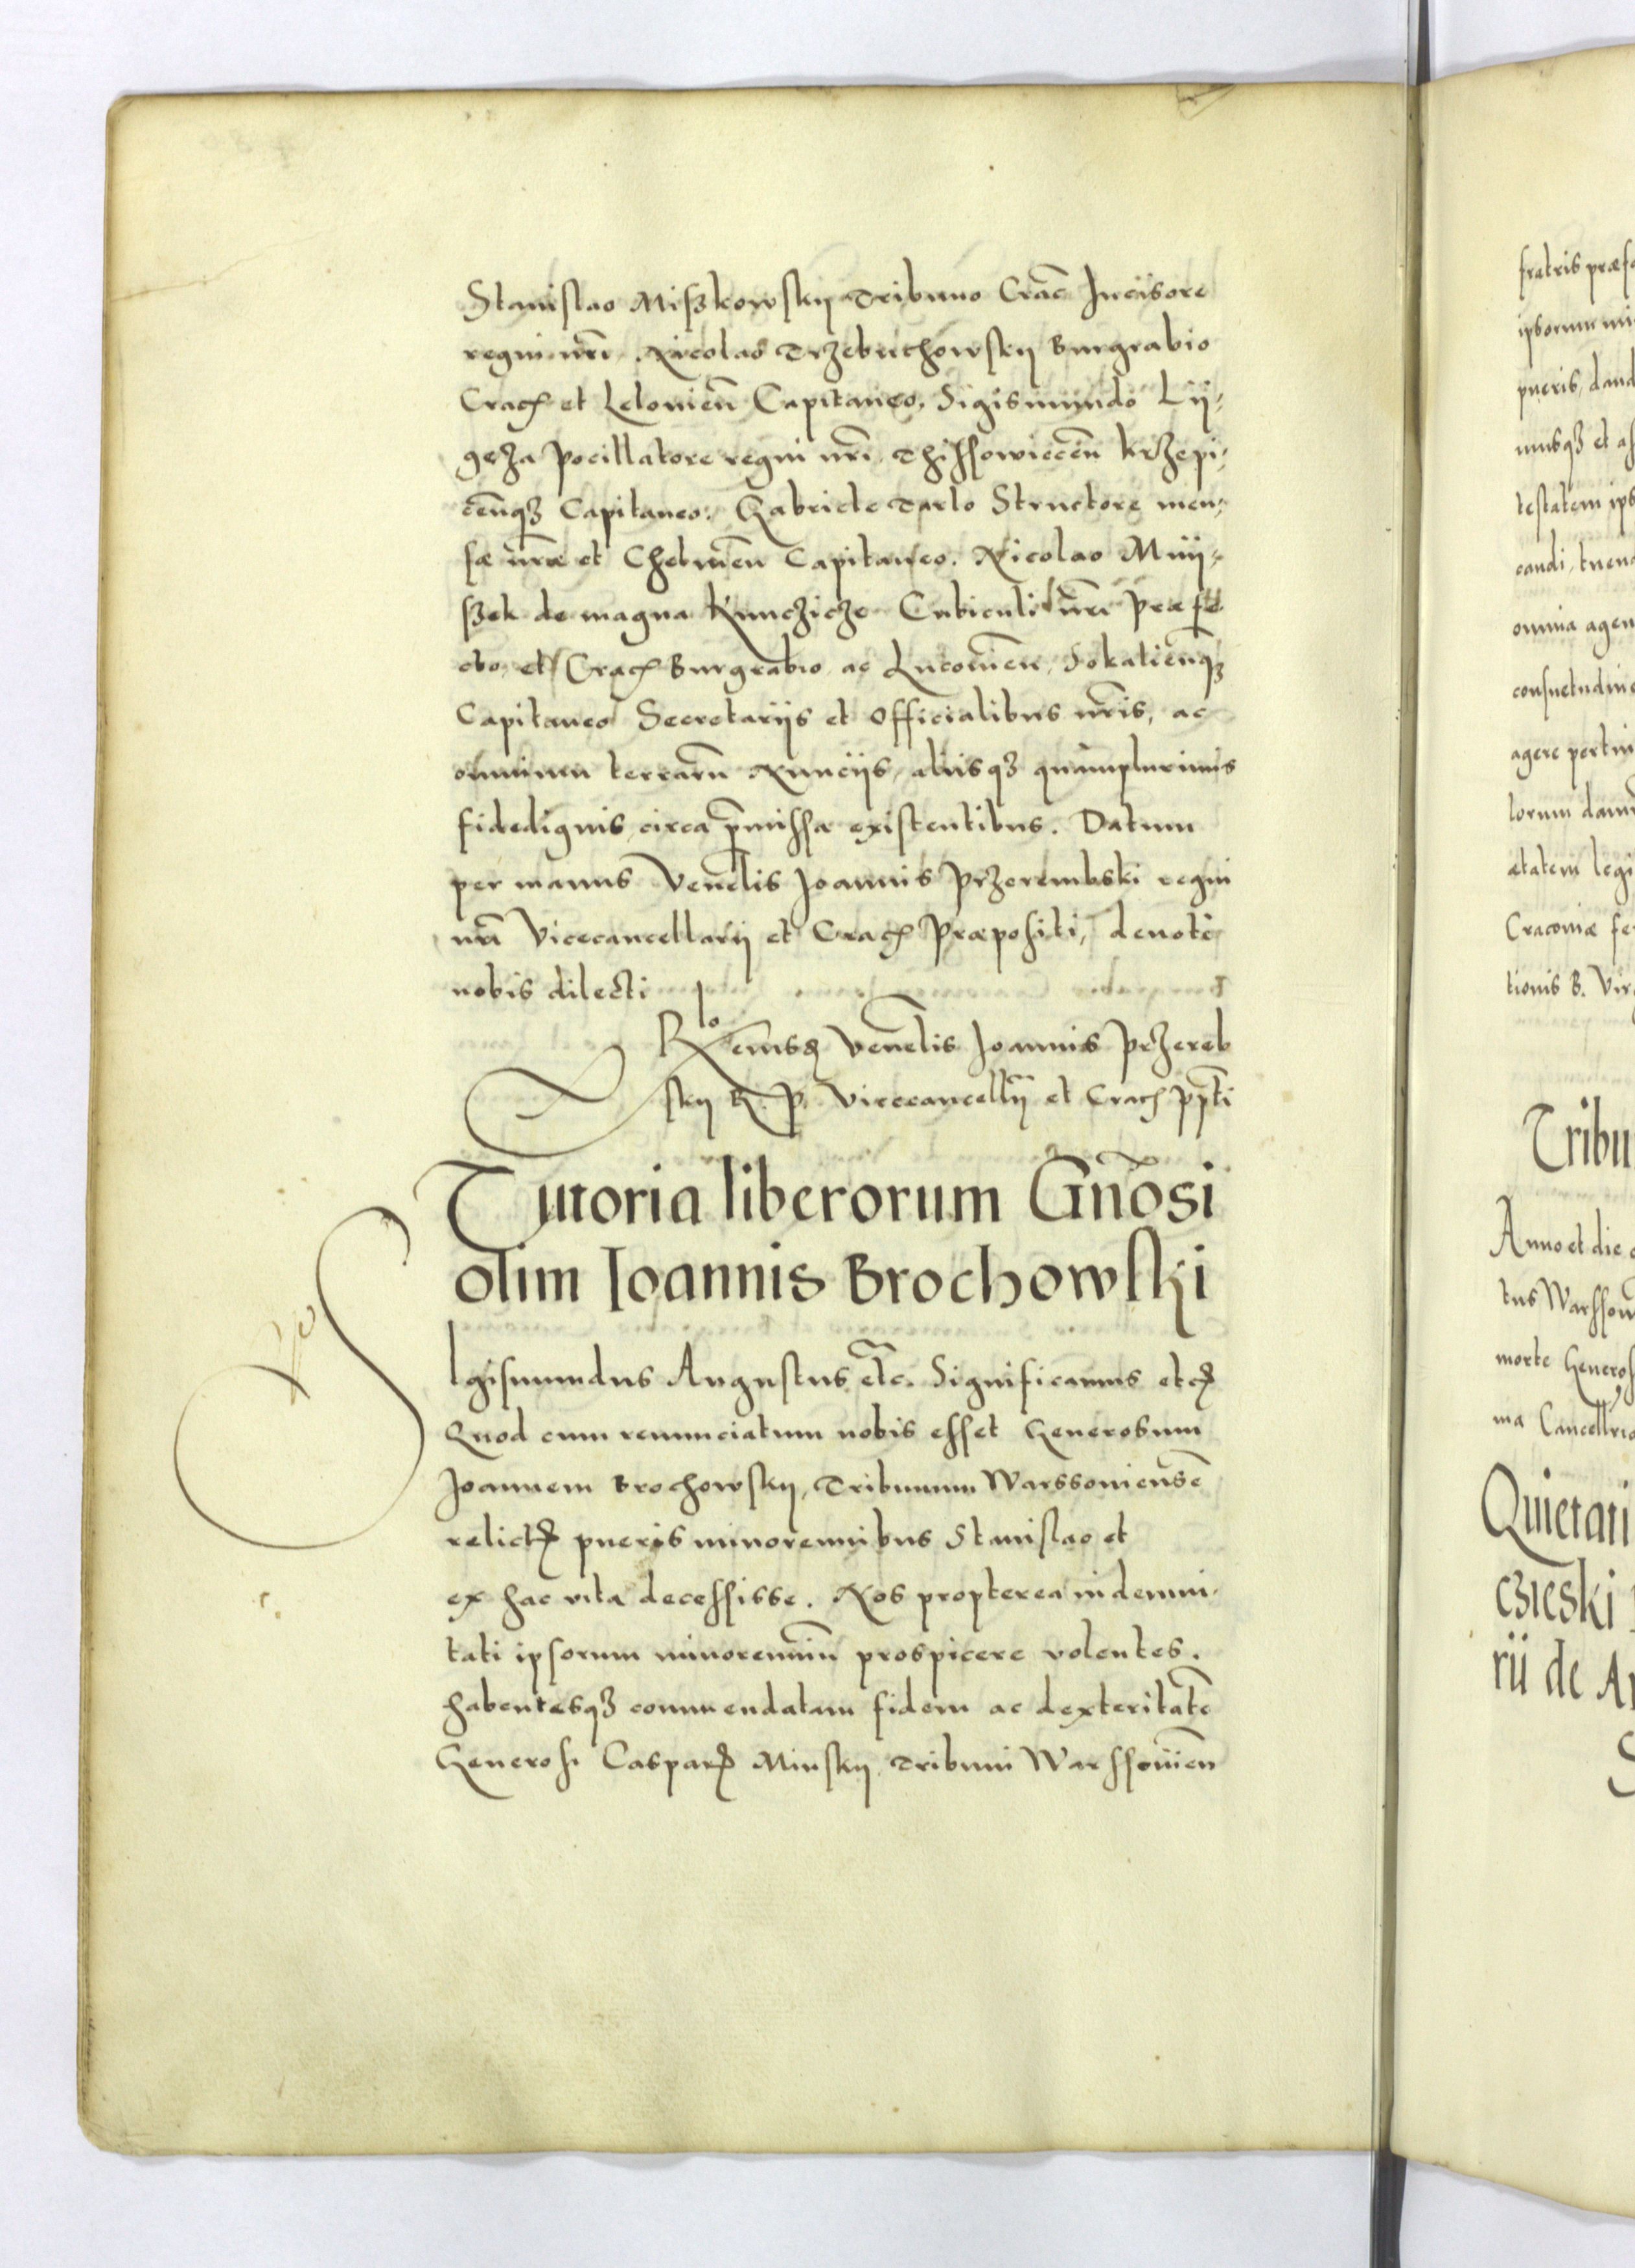 Stanislao Miszkowsky Tribuno Crac̄ Incisore
regni nr̄i, Nicolao Trzebuchowsky Burgrabio
Cracꝭ et Leloviēn Capitaneo, Sigismundo Lÿ¬
geza Pocillatore regni nr̄i, Thissowieceñ Krzepi¬
ceñqꝫ Capitaneo, Gabriele Tarlo Structore men¬
sæ nr̄æ et Chelmēn Capitaneo, Nicolao Mnÿ¬
szek de magna Kunczicze Cubiculi nr̄i Præfe
cto, et Cracꝭ Burgrabio, ac Lucovieñ, Sokalieñqꝫ
Capitaneo Secretariis et Officialibus nr̄is, ac
omnium terrarū Nunciis, aliisqꝫ quamplurimis
fidedignis circa p̄missa existentibus. Datum
per manus Venel̄is Joannis Przerembski regni
nr̄i Vicecancellarij et Cracꝭ Præpositi, devote
nobis dilecti
R̄lo eiusdꝫ Venel̄is Joannis Przereb
sky R. P. Vicecancellrÿ et Cracꝭ pp̄ti
Tutoria liberorum Gn̄osi
olim Ioannis Brochowski
SIgismundus Augustus etc̄. Significamus etcꝭ
Quod cum renunciatum nobis esset Generosum
Joannem Brochowsky, Tribunum Warssoviensē
relictꝭ pueris minorennibus Stanislao et
ex hac vita decessisse. Nos propterea indemni¬
tati ipsorum minorenniū prospicere volentes.
habentesqꝫ commendatam fidem ac dexteritatē
Generosi Casparꝭ Minsky, Tribuni Warssovieñ
fratris præf
pueris, dand
omnia agen
consuetudin
agere pertin
lorum dam
ætatem legi
Cracoviæ fe
tionis B. Vir
Tribu
Anno et die
tus Warssov
morte Generos
ma Cancellri
Quietati
czieski
rii de A